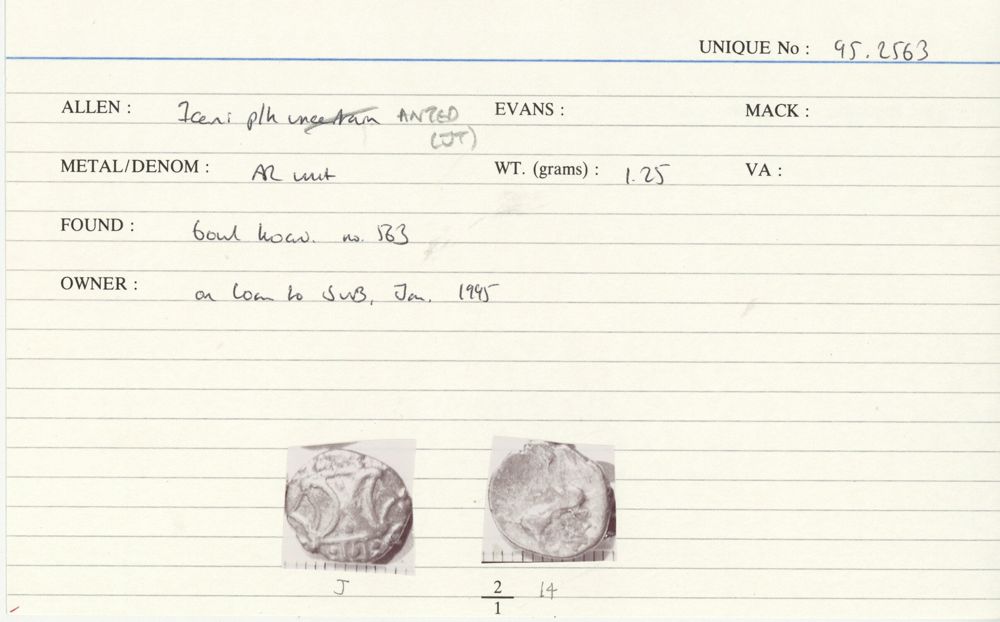 UNIQUE No : 95.2563
ALLEN : Iceni p/h uncertain ANTED EVANS : MACK :
(JT)
METAL/DENOM : AR unit WT. (grams) : 1.25 VA :
FOUND : bowl hoard. no. 563
OWNER : on loan to SUB, Jan. 1995
J 2 14
1